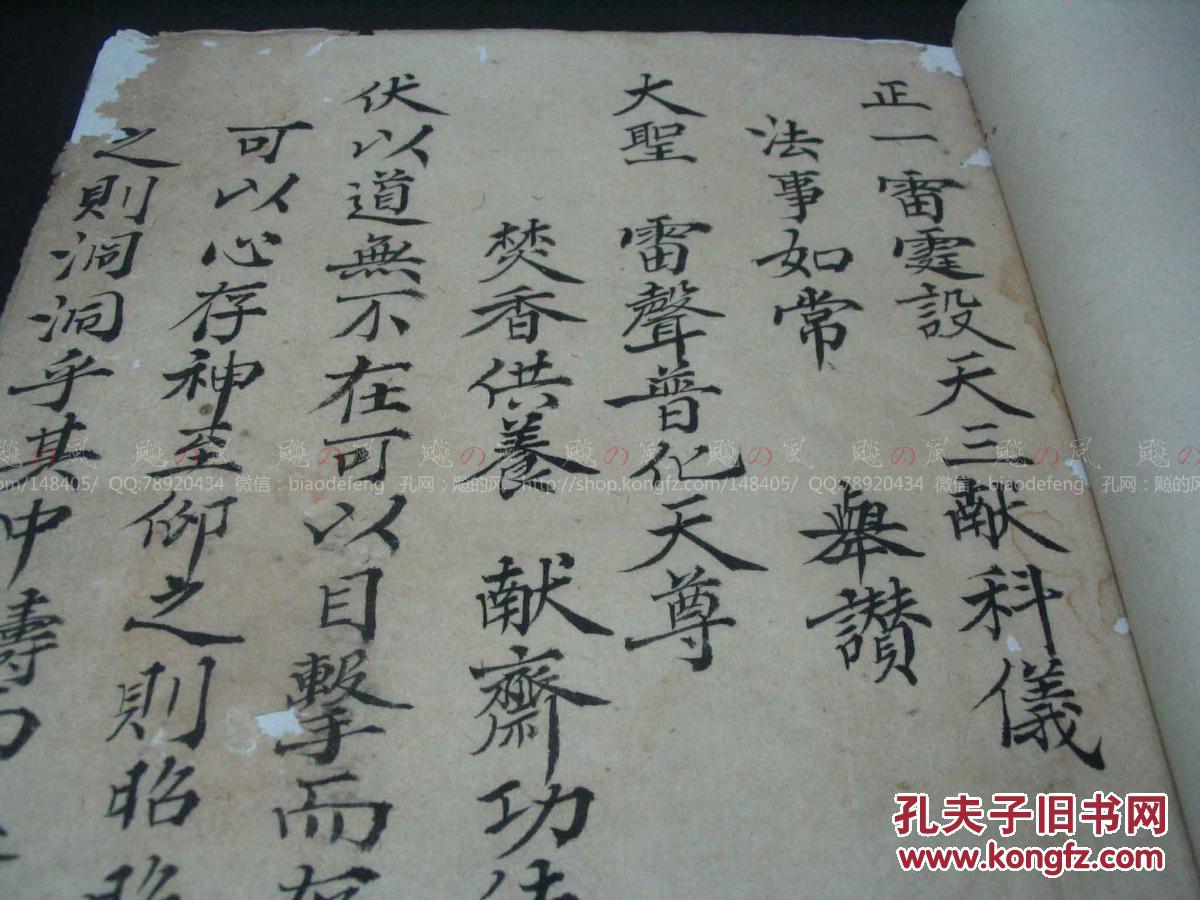 正一雷霆設天三献科儀
法事如常 舉讃
大聖 雷聲普化天尊
焚香供養 献齋功
伏以道無不在可以目擊而存
可以心存神至仰之則昭昭
之則洞洞乎其中壽
飈の風 飈の風 飈の風 飈の風
.com/148405/ QQ:78920434 微信:biaodefeng 孔网:飚的风 http://shop.kongfz.com/148405/ QQ:78920434 微信:biaodefeng 孔网:飚的风
孔夫子旧书网
www.kongfz.com